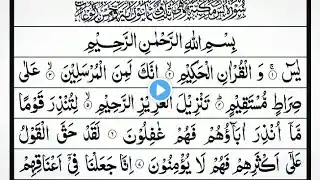 بِسْمِ اللهِ الرَّحْمٰنِ الرَّحِيْمِ
يٰسٓ ۚ ١ وَ الْقُرْاٰنِ الْحَكِيْمِ ۙ ٢ اِنَّكَ لَمِنَ الْمُرْسَلِيْنَ ۙ ٣ عَلٰى
صِرَاطٍ مُّسْتَقِيْمٍ ؕ ٤ تَنْزِيْلَ الْعَزِيْزِ الرَّحِيْمِ ۙ ٥ لِتُنْذِرَ قَوْمًا
مَّاۤ اُنْذِرَ اٰبَآؤُهُمْ فَهُمْ غٰفِلُوْنَ ٦ لَقَدْ حَقَّ الْقَوْلُ
عَلٰۤى اَكْثَرِهِمْ فَهُمْ لَا يُؤْمِنُوْنَ ٧ اِنَّا جَعَلْنَا فِيْۤ اَعْنَاقِهِمْ